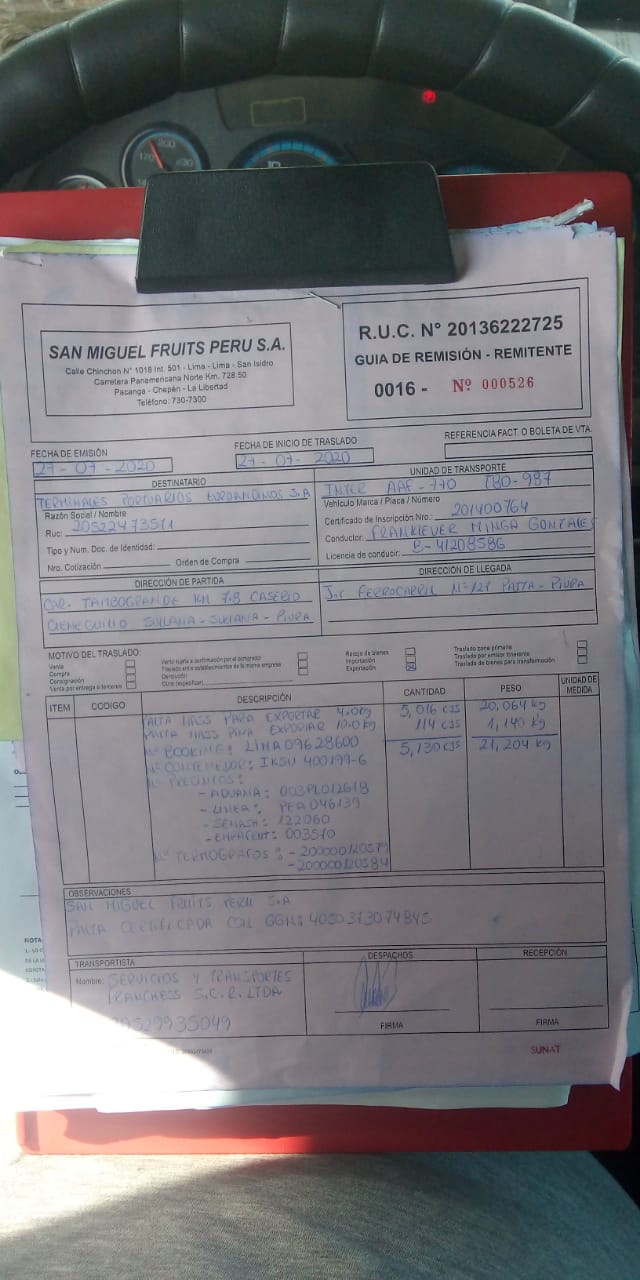 200
170
230
SAN MIGUEL FRUITS PERU S.A.
Calle Chinchon N° 1018 Int. 501 - Lima - Lima - San Isidro
Carretera Panamericana Norte Km. 728.50
Pacanga - Chepén - La Libertad
Teléfono: 730-7300
R.U.C. N° 20136222725
GUIA DE REMISIÓN - REMITENTE
0016 - Nº 000526
FECHA DE EMISIÓN
27 - 07 - 2020
FECHA DE INICIO DE TRASLADO
27 - 07 - 2020
REFERENCIA FACT. O BOLETA DE VTA.
DESTINATARIO
TERMINALES PORTUARIOS EUROANDINOS S.A
Razón Social / Nombre
Ruc: 20522473571
Tipo y Num. Doc. de Identidad:
Nro. Cotización Orden de Compra
UNIDAD DE TRANSPORTE
INTER AAF-770 TBO-987
Vehículo Marca / Placa / Número
Certificado de Inscripción Nro.: 201400764
Conductor: FRANKLEVER MINGA GONZALES
Licencia de conducir: B-41208586
DIRECCIÓN DE PARTIDA
CAR. TAMBOGRANDE KM 7.8 CASERIO
CIENEGUILLO SULLANA - SULLANA - PIURA
DIRECCIÓN DE LLEGADA
Jr. FERROCARRIL Nº 127 PAITA - PIURA
MOTIVO DEL TRASLADO:
Venta
Compra
Consignación
Venta por entrega a terceros
Venta sujeta a confirmación por el comprador
Traslado entre establecimientos de la misma empresa
Devolución
Otros (especificar)
Recojo de bienes
Importación
Exportación
Traslado zona primaria
Traslado por emisor itinerante
Traslado de bienes para transformación
ITEM CODIGO DESCRIPCIÓN CANTIDAD PESO UNIDAD DE MEDIDA
PALTA HASS PARA EXPORTAR 4.0kg 5,016 cjs 20,064 kg
PALTA HASS PARA EXPORTAR 10.0 kg 114 cjs 1,140 kg
Nº BOOKING: LIMA09628600 5,130 cjs 21,204 kg
Nº CONTENEDOR: IKSU 400199-6
Nº PRECINTOS:
- ADUANA: 003PL012618
- LINEA: PEA046139
- SENASA: 122060
- EMPACENT: 003510
Nº TERMOGRAFOS: - 20000012057
- 200000120584
OBSERVACIONES
SAN MIGUEL FRUITS PERU S.A
PALTA CERTIFICADA CON GGN: 4050373074845
TRANSPORTISTA
Nombre: SERVICIOS Y TRANSPORTES
TRANCHESS S.C.R. LTDA
20529935049
DESPACHOS
FIRMA
RECEPCIÓN
FIRMA
SUNAT
NOTA